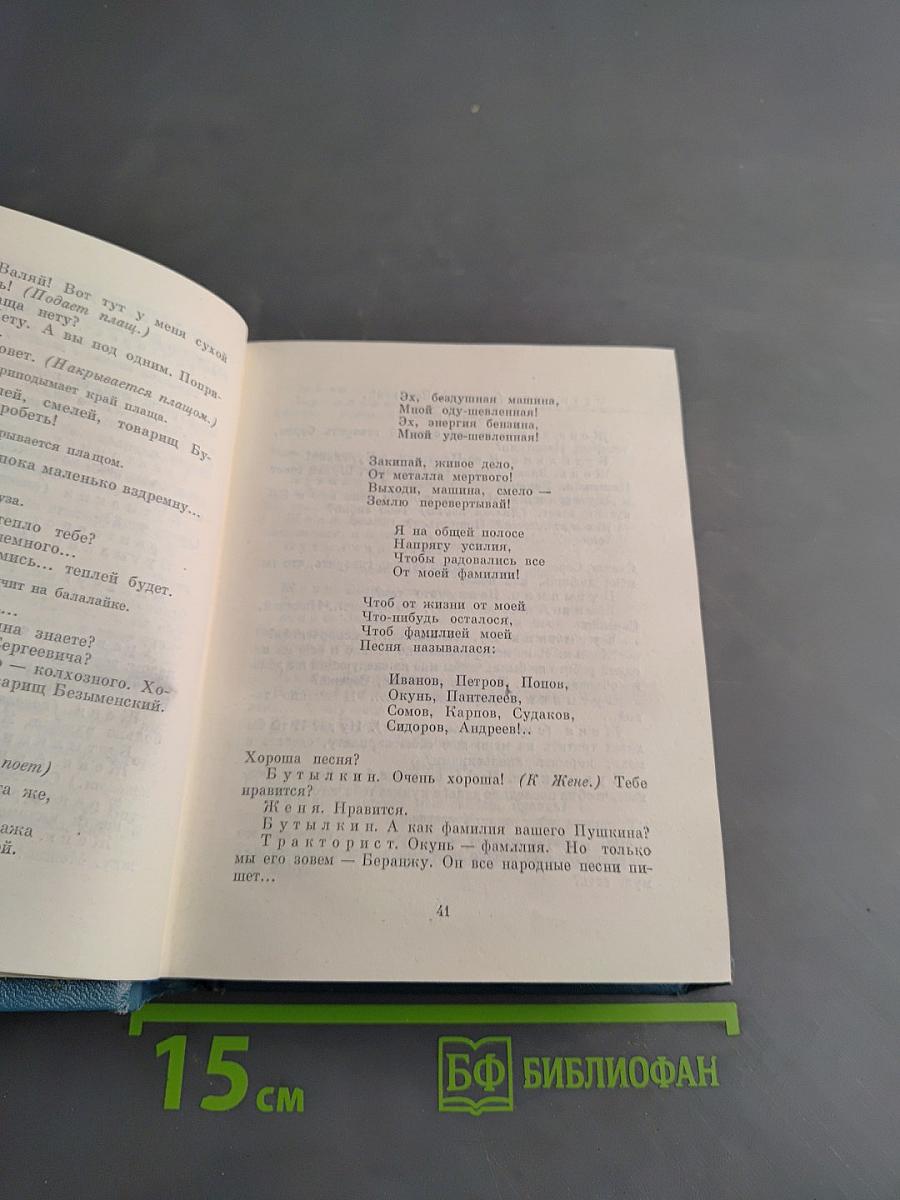 Валяй! Вот тут у меня сухой
ь! (Подает плащ.)
аща нету?
ету. А вы под одним. Попри-
овет. (Накрывается плащом.)
риподымает край плаща.
лей, смелей, товарищ Бу-
робеть!
рывается плащом.
пока маленько вздремну...
уза.
тепло тебе?
немного...
мись... теплей будет.
чит на балалайке.
...
ина знаете?
Сергеевича?
о — колхозного. Хо-
варищ Безыменский.
поет)
та же,
ажа
ой.
Эх, бездушная машина,
Мной оду-шевленная!
Эх, энергия бензина,
Мной уде-шевленная!
Закипай, живое дело,
От металла мертвого!
Выходи, машина, смело —
Землю перевертывай!
Я на общей полосе
Напрягу усилия,
Чтобы радовались все
От моей фамилии!
Чтоб от жизни от моей
Что-нибудь осталося,
Чтоб фамилией моей
Песня называлася:
Иванов, Петров, Попов,
Окунь, Пантелеев,
Сомов, Карпов, Судаков,
Сидоров, Андреев!..
Хороша песня?
Бутылкин. Очень хороша! (К Жене.) Тебе
нравится?
Женя. Нравится.
Бутылкин. А как фамилия вашего Пушкина?
Тракторист. Окунь — фамилия. Но только
мы его зовем — Беранжу. Он все народные песни пи-
шет...
41
15 см
БФ БИБЛИОФАН